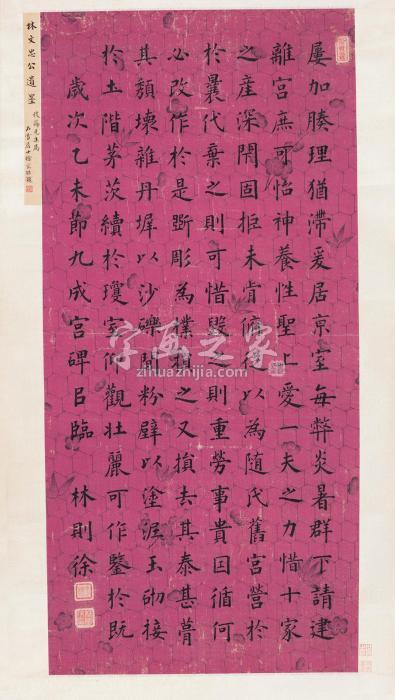 林文忠公遺墨
屢加腠理猶滯爰居京室每弊炎暑群下請建
離宮庶可怡神養性聖上愛一夫之力惜十家
之產深閉固拒未肯俯從以為随氏舊宮營於
於曩代棄之則可惜毀之則重勞事貴因循何
必改作於是斲彫為樸損之又損去其泰甚葺
其頹壞雜丹墀以沙礫間粉壁以塗泥玉砌接
於土階茅茨續於瓊室仰觀壯麗可作鑒於既
歲次乙未節九成宮碑臨 林則徐
字画之家
zihuazhijia.com